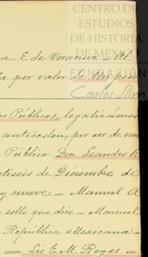 CENTRO DE
ESTUDIOS
DE HISTORIA
DE MEXICO
CARSO
Carlos Slim
a E. de Veracruz
ía por valor
os Públicos, legalizamos
anteceden, por ser de
Público Don Leandro
tiseis de Diciembre de
y nueve — Manuel A
sello que dice — Manuel
República Mexicana —
Lic E. M. Reyes —